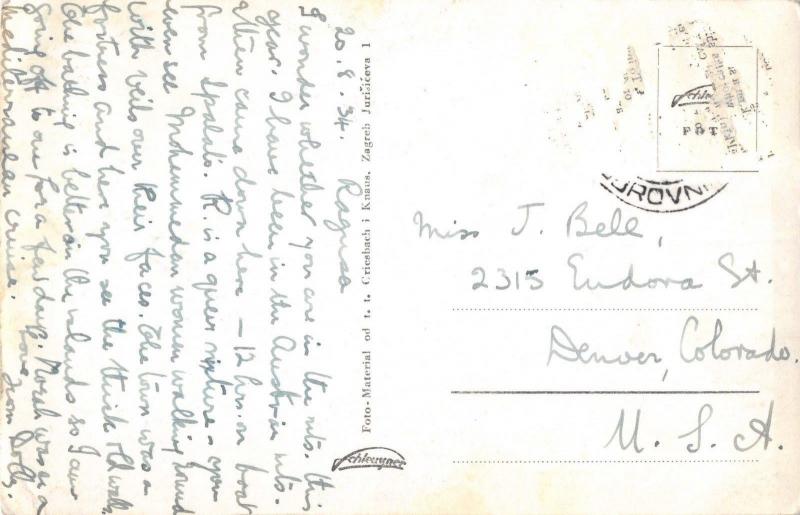 20.8.34. Ragusa
I wonder whether you are in the mts. this
year. I have been in the Austrian mts.
then came down here – 12 hrs. on boat
from Spalato. R. is a queer mixture – you
even see Mohammedan women walking round
with veils over their faces. The town was a
fortress and here you see the thick old walls.
The bathing is better on the islands so I am
going off to one for a few days. Noeah was on a
Mediterranean cruise. Love from Dolly.
Foto-Material od t. t. Griesbach i Knaus. Zagreb Jurišićeva 1
Schleussner
FOT
Miss J. Bell,
2315 Eudora St.
Denver, Colorado.
U. S. A.